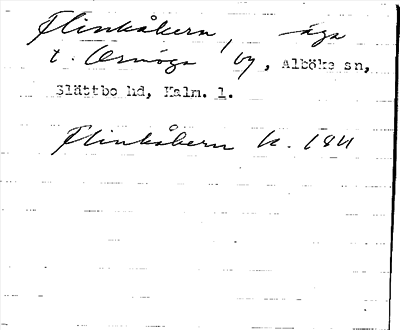 Flinkåkern, äga
t. Örnöga by, Alböke sn,
Slättbo hd, Kalm. l.
Flinkåkern k. 1841